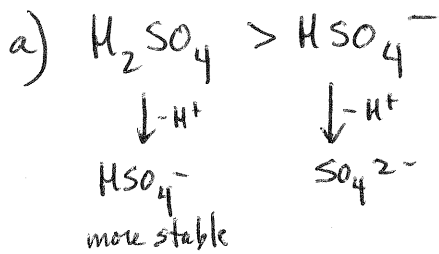 a) H₂SO₄ > HSO₄⁻
↓ -H⁺ ↓ -H⁺
HSO₄⁻ SO₄²⁻
more stable